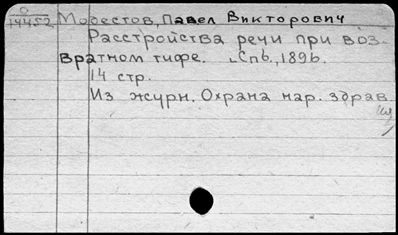 О
14452 Модестов, Павел Викторович
Расстройства речи при воз-
вратном тифе. Спб., 1896.
14 стр.
Из журн. Охрана нар. здрав